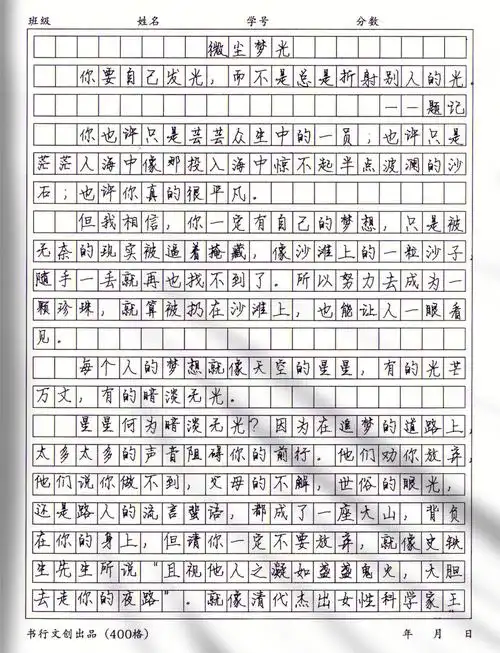 班级 姓名 学号 分数
微尘梦光
你要自己发光，而不是总是折射别人的光
——题记
你也许只是芸芸众生中的一员；也许只是
茫茫人海中像那投入海中惊不起半点波澜的沙
石；也许你真的很平凡。
但我相信，你一定有自己的梦想，只是被
无奈的现实被逼着掩藏，像沙滩上的一粒沙子，
随手一丢就再也找不到了。所以努力去成为一
颗珍珠，就算被扔在沙滩上，也能让人一眼看
见。
每个人的梦想就像天空的星星，有的光芒
万丈，有的暗淡无光。
星星何为暗淡无光？因为在追梦的道路上，
太多太多的声音阻碍你的前行。他们劝你放弃，
他们说你做不到，父母的不解，世俗的眼光，
还是路人的流言蜚语，都成了一座大山，背负
在你的身上，但请你一定不要放弃，就像史铁
生先生所说“且视他人之凝如盏盏鬼火，大胆
去走你的夜路”。就像清代杰出女性科学家王
书行文创出品（400格） 年 月 日